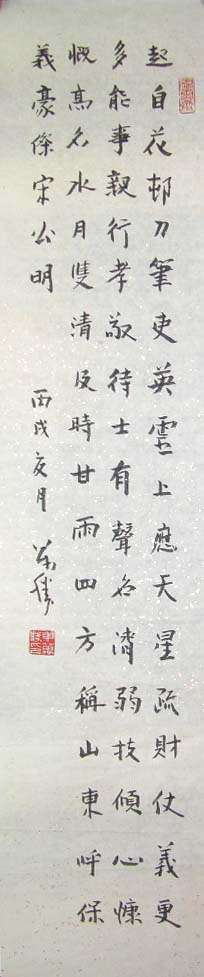 起自花邨刀筆吏英靈上應天星疏財仗義更
多能事親行孝敬待士有聲名濟弱技傾心慷
慨高名水月雙清及時甘雨四方稱山東呼保
義豪傑宋公明
丙戌月